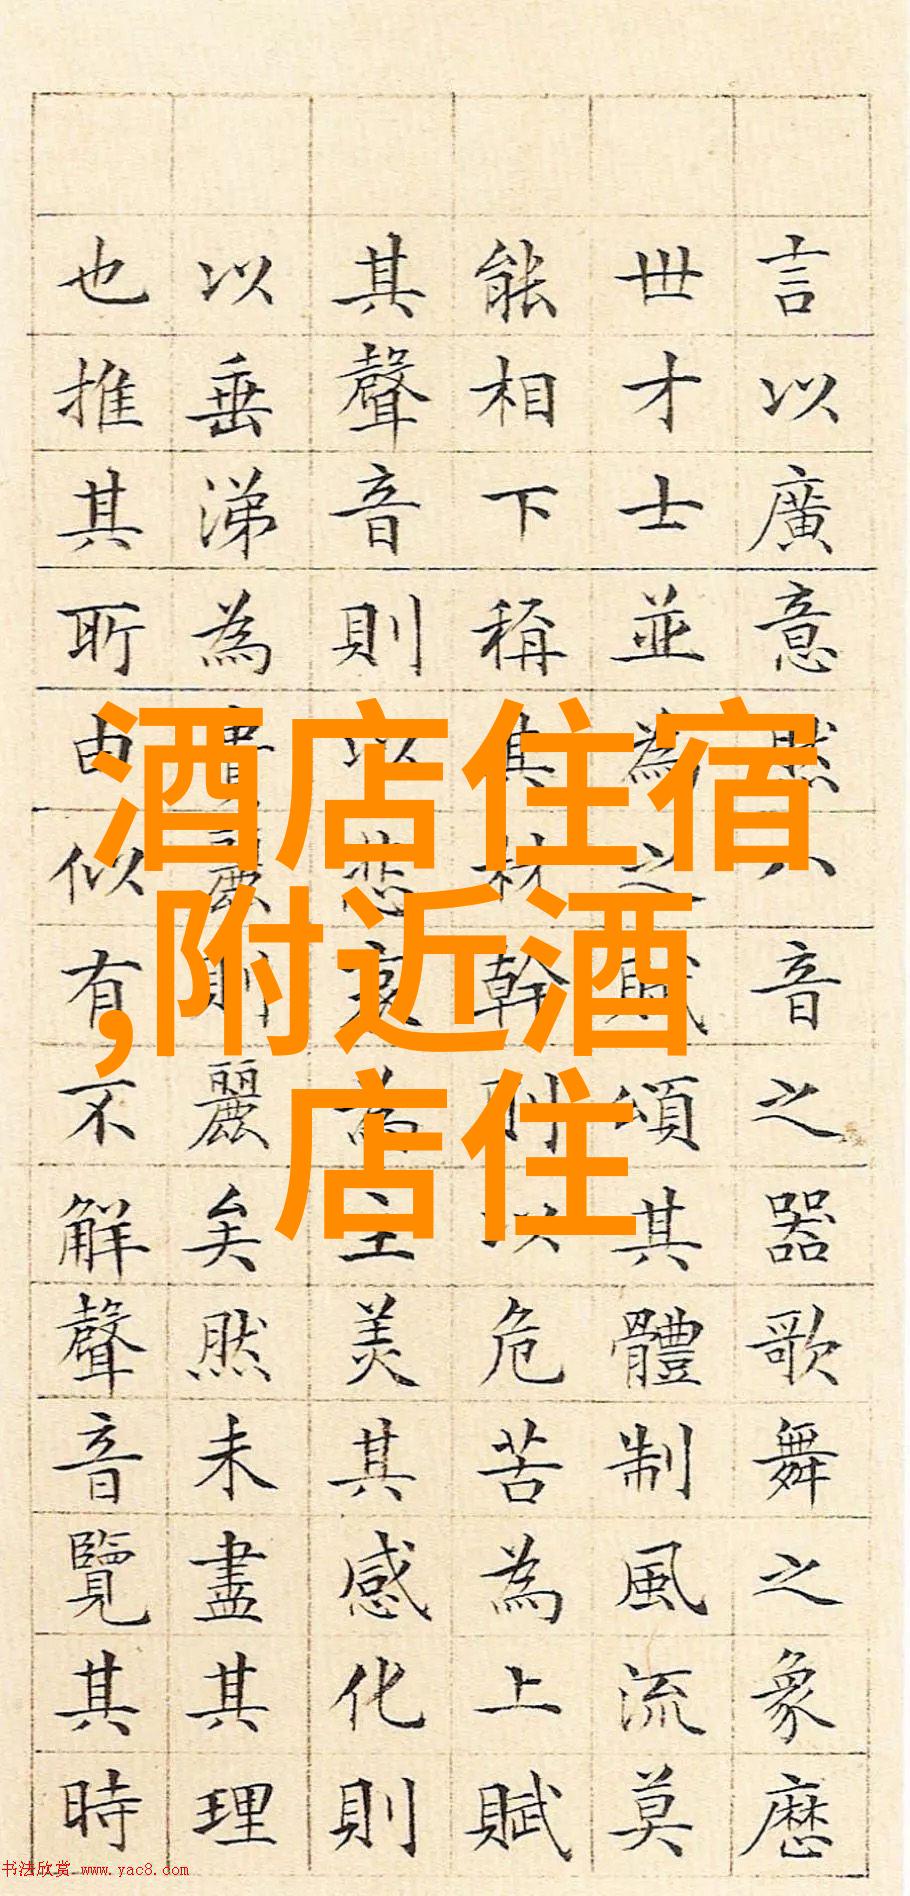 言以廣意然八音之器歌舞之象歷
世才士並為之賦頌其體制風流莫
能相下稱其材幹則以危苦為上賦
其聲音則以悲哀為主美其感化則
以垂涕為貴麗則麗矣然未盡其理
也推其所由似有不解聲音覽其時
酒店住宿
,附近酒
店住
书法欣赏 www.yac8.com